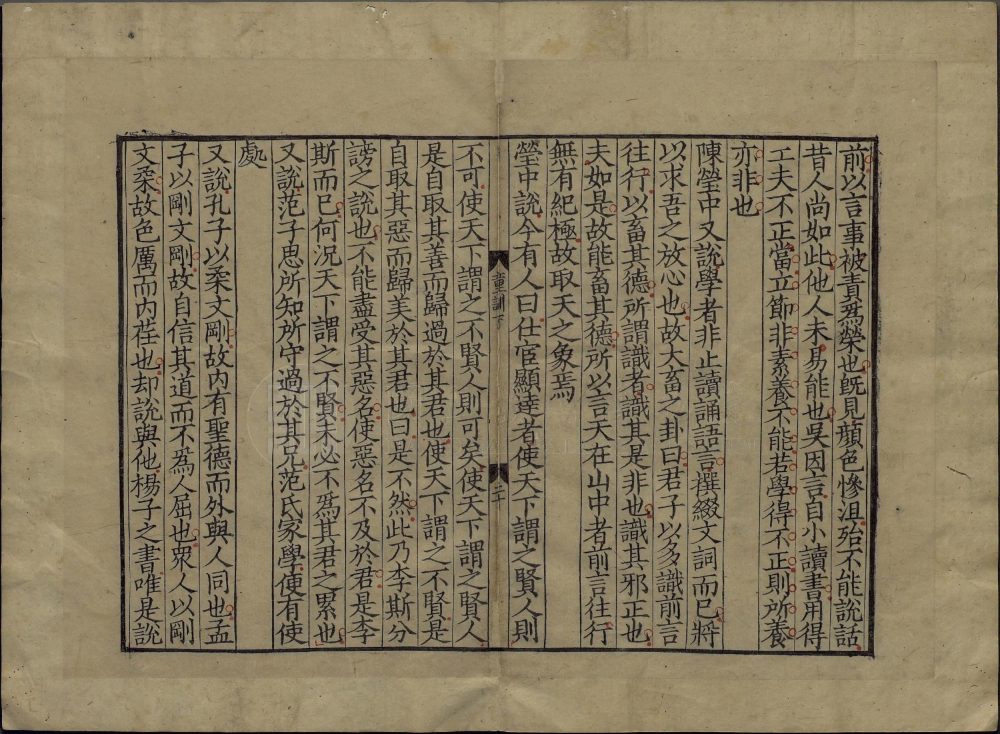 前以言事被責爲榮也既見顏色慘沮殆不能說話
昔人尚如此他人未易能也吳因言自小讀書用得
工夫不正當立節非素養不能若學得不正則所養
亦非也
陳瑩中又說學者非止讀誦語言撰綴文詞而已將
以求吾之放心也故大畜之卦曰君子以多識前言
往行以畜其德所謂識者識其是非也識其邪正也
夫如是故能畜其德所以言天在山中者前言往行
無有紀極故取天之象焉
瑩中說今有人曰仕宦顯達者使天下謂之賢人則
童訓下
二十
不可使天下謂之不賢人則可矣使天下謂之賢人
是自取其善而歸過於其君也使天下謂之不賢是
自取其惡而歸美於其君也曰是不然此乃李斯分
謗之說也不能盡受其惡名使惡名不及於君是李
斯而已何況天下謂之不賢未必不爲其君之累也
又說范子思所知所守過於其兄范氏家學使有使
處
又說孔子以柔文剛故內有聖德而外與人同也孟
子以剛文剛故自信其道而不爲人屈也衆人以剛
文柔故色厲而內荏也却說與他楊子之書唯是說